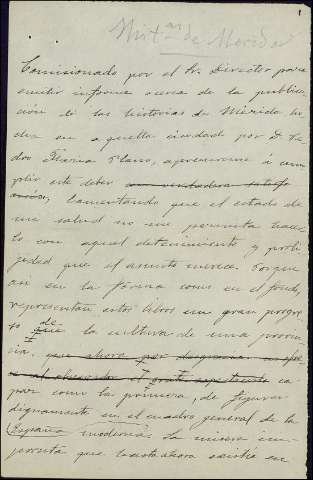 1
Hist.as de Mérida
Comisionado por el Sr. Director para
emitir informe acerca de la publica-
ción de las historias de Mérida he-
cha en aquella ciudad por D. Pe-
dro María Plano, apresurome á cum-
plir este deber con verdadera satisfa
cción, lamentando que el estado de
mi salud no me permita hacer
lo con aquel detenimiento y proli-
jidad que el asunto merece. Porque
así en la forma como en el fondo,
representan estos libros un gran progre
so de que la cultura de una provin
cia, que ahora por desgracia
capaz como la primera, de figurar
dignamente en el cuadro general de la
España moderna. La misma im-
prenta que hasta ahora existía en